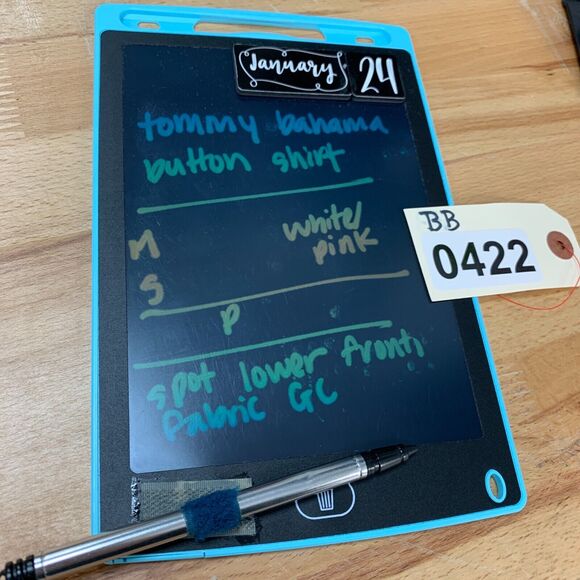 January 24
tommy bahama
button shirt
M white/
pink
S
P
spot lower front,
Fabric GC
BB
0422